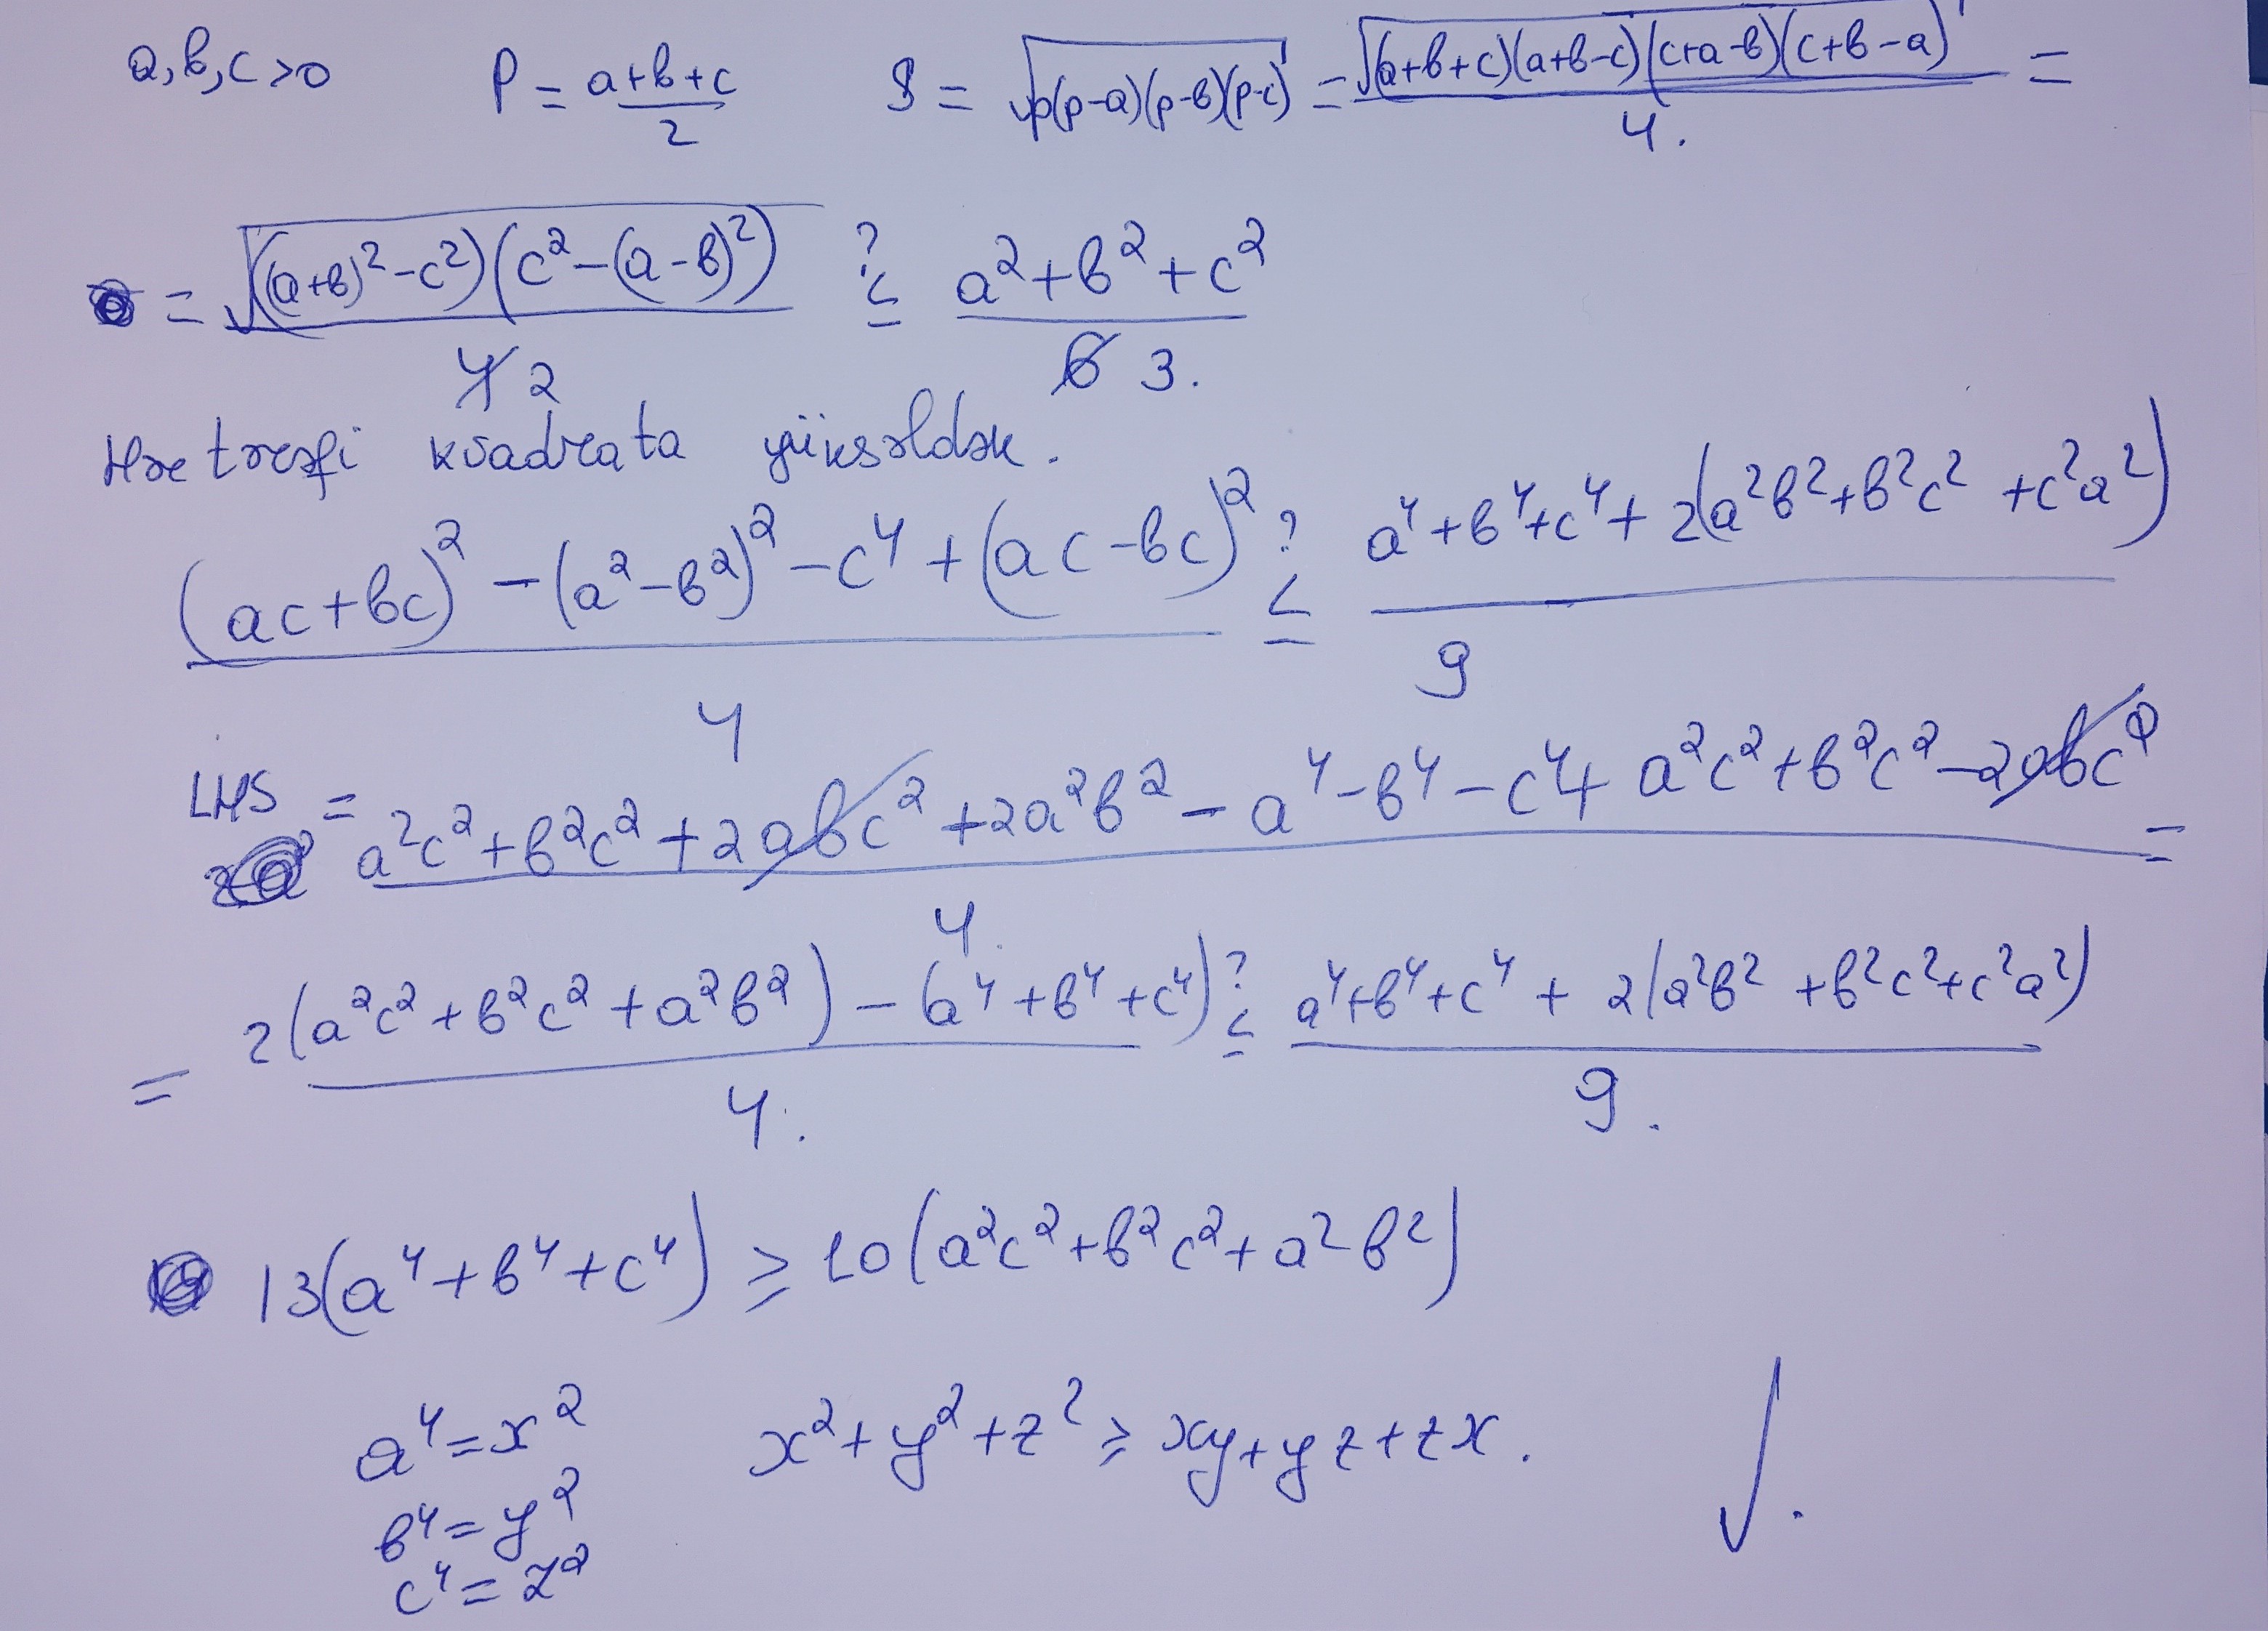 a,b,c>0 P = (a+b+c)/2 S = √(p(p-a)(p-b)(p-c)) = √((a+b+c)(a+b-c)(c+a-b)(c+b-a))/4. =
= √(((a+b)²-c²)(c²-(a-b)²))/4 2 ?≤ (a²+b²+c²)/6 3.
Hər tərəfi kvadrata yüksəldək.
((ac+bc)² - (a²-b²)² - c⁴ + (ac-bc)²)/4 ?≤ (a⁴+b⁴+c⁴+2(a²b²+b²c²+c²a²))/9
LHS = (a²c²+b²c²+2abc²+2a²b²-a⁴-b⁴-c⁴+a²c²+b²c²-2abc²)/4. =
= (2(a²c²+b²c²+a²b²) - (a⁴+b⁴+c⁴))/4. ?≤ (a⁴+b⁴+c⁴+2(a²b²+b²c²+c²a²))/9.
13(a⁴+b⁴+c⁴) ≥ 10(a²c²+b²c²+a²b²)
a⁴=x² x²+y²+z² ≥ xy+yz+zx. √.
b⁴=y²
c⁴=z²